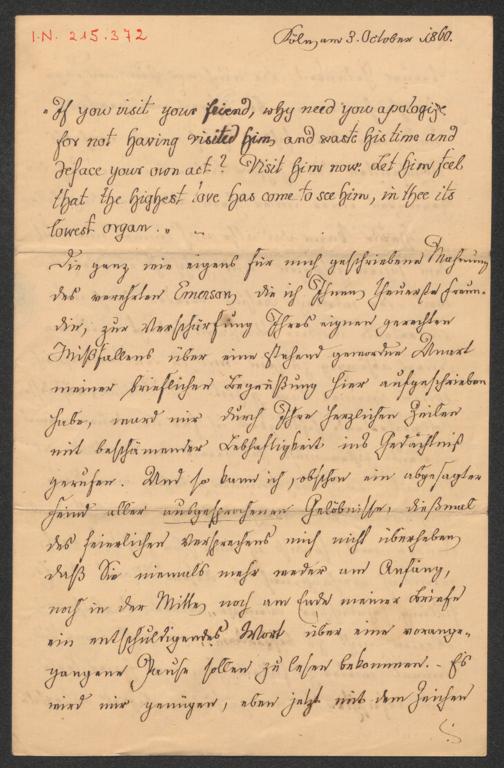 I.N. 215.372
Köln, am 3. October 1860.
„If you visit your friend, why need you apologize
for not having visited him, and waste his time and
deface your own act? Visit him now. Let him feel
that the highest love has come to see him, in thee its
lowest organ.“ –
Die ganz wie eigens für mich geschriebene Mahnung
des verehrten Emerson, die ich Ihnen, theuerste Freun-
din, zur Verschärfung Ihres eignen gerechten
Mißfallens über eine stehend gewordne Unart
meiner brieflichen Begrüßung hier aufgeschrieben
habe, ward mir durch Ihre herzlichen Zeilen
mit beschämender Lebhaftigkeit ins Gedächtniß
gerufen. Und so kann ich, obschon ein abgesagter
Feind aller ausgesprochenen Gelöbnisse, dießmal
des feierlichen Versprechens mich nicht überheben,
daß Sie niemals mehr weder am Anfang,
noch in der Mitte, noch am Ende meiner Briefe
ein entschuldigendes Wort über eine vorange-
gangene Pause sollen zu lesen bekommen. – Es
wird mir genügen, eben jetzt mit dem Zeichen